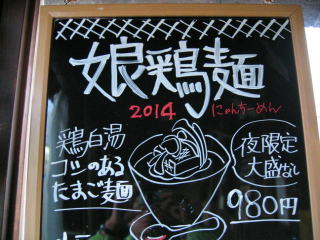 娘鶏麺
2014 にゃんちーめん
鶏白湯
コシのある
たまご麺
夜限定
大盛なし
980円